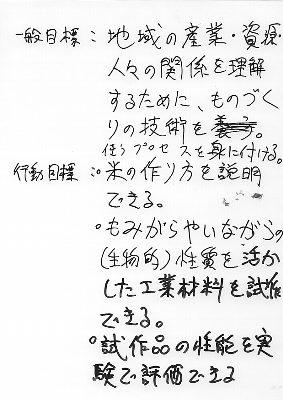 一般目標：地域の産業・資源
人々の関係を理解
するために、ものづく
りの技術を。
使うプロセスを身に付ける。
行動目標：○米の作り方を説明
できる。
○もみがらやいながらの
(生物的)性質を活か
した工業材料を試作
できる。
○試作品の性能を実
験で評価できる